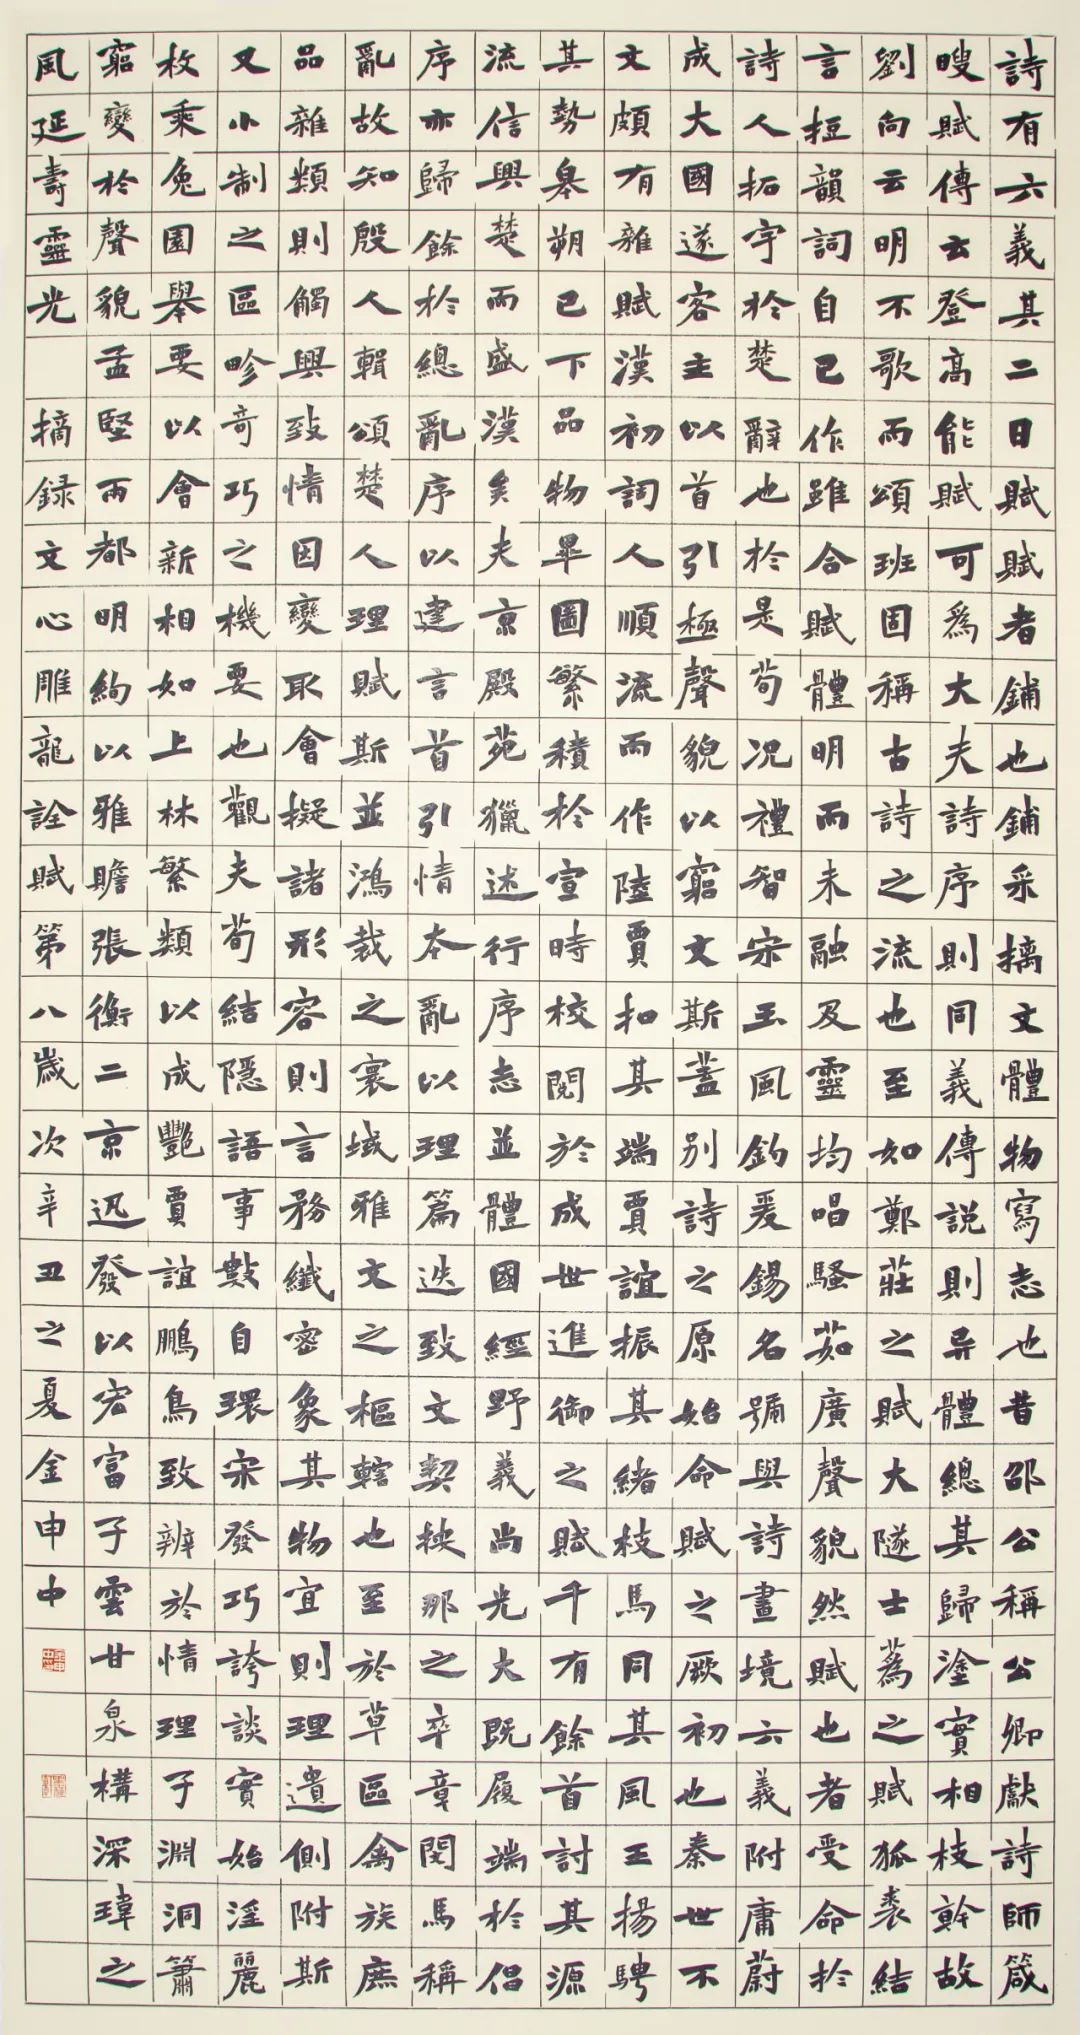 詩有六義其二曰賦賦者鋪也鋪采摛文體物寫志也昔邵公稱公卿獻詩師箴
瞍賦傳云登高能賦可為大夫詩序則同義傳説則异體總其歸塗實相枝幹故
劉向云明不歌而頌班固稱古詩之流也至如鄭莊之賦大隧士蒍之賦狐裘結
言韻詞自已作雖合賦體明而未融及靈均唱騷茹廣聲貌然賦也者受命於
詩人拓宇於楚辭也於是荀况禮智宋玉風釣爰錫名號與詩畫境六義附庸蔚
成大國遂客主以首引極聲貌以窮文斯蓋別詩之原始命賦之厥初也秦世不
文頗有雜賦漢初詞人順流而作陸賈扣其端賈誼振其緒枝馬同其風王揚騁
其勢皋朔已下品物畢圖繁積於宣時校閱於成世進御之賦千有餘首討其源
流信興楚而盛漢矣夫京殿苑獵述行序志並體國經野義尚光大既履端於倡
序亦歸餘於總亂序以建言首引情本亂以理篇迭致文契那之卒章閔馬稱
亂故知殷人輯頌楚人理賦斯並鴻裁之寰域雅文之樞轄也至於草區禽族庶
品雜類則觸興致情因變取會擬諸形容則言務纖密象其物宜則理遺側附斯
又小制之區畛奇巧之機要也觀夫荀結隱語事數自環宋發巧誇談實始淫麗
枚乘兔園舉要以會新相如上林繁類以成艷賈誼鵬鳥致辨於情理子淵洞簫
窮變於聲貌孟堅兩都明絢以雅贍張衡二京迅發以宏富子雲甘泉構深瑋之
風延壽靈光 摘録文心雕龍詮賦第八歲次辛丑之夏金申中